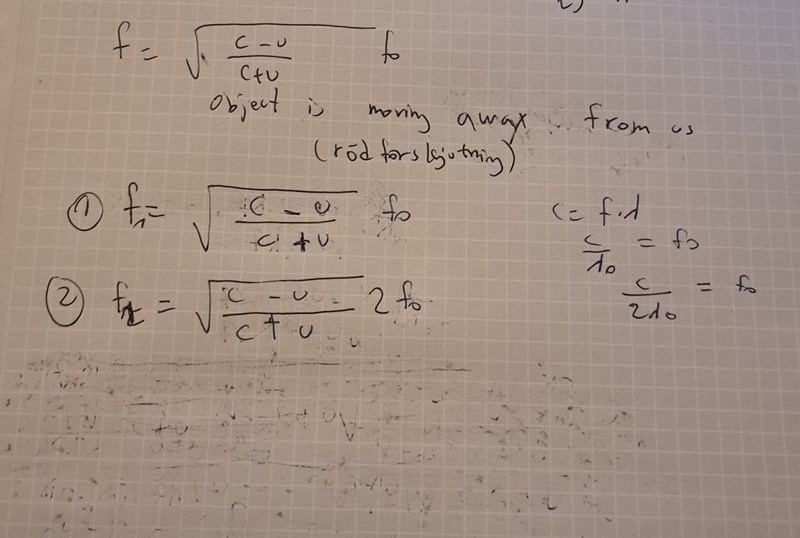 f = √((c - υ)/(c+υ)) f₀
Object is moving away from us
(rödförskjutning)
① f₁ = √((c - υ)/(c + υ)) f₀
② f₂ = √((c - υ)/(c + υ)) 2 f₀
c = f·λ
c/λ₀ = f₀
c/2λ₀ = f₀